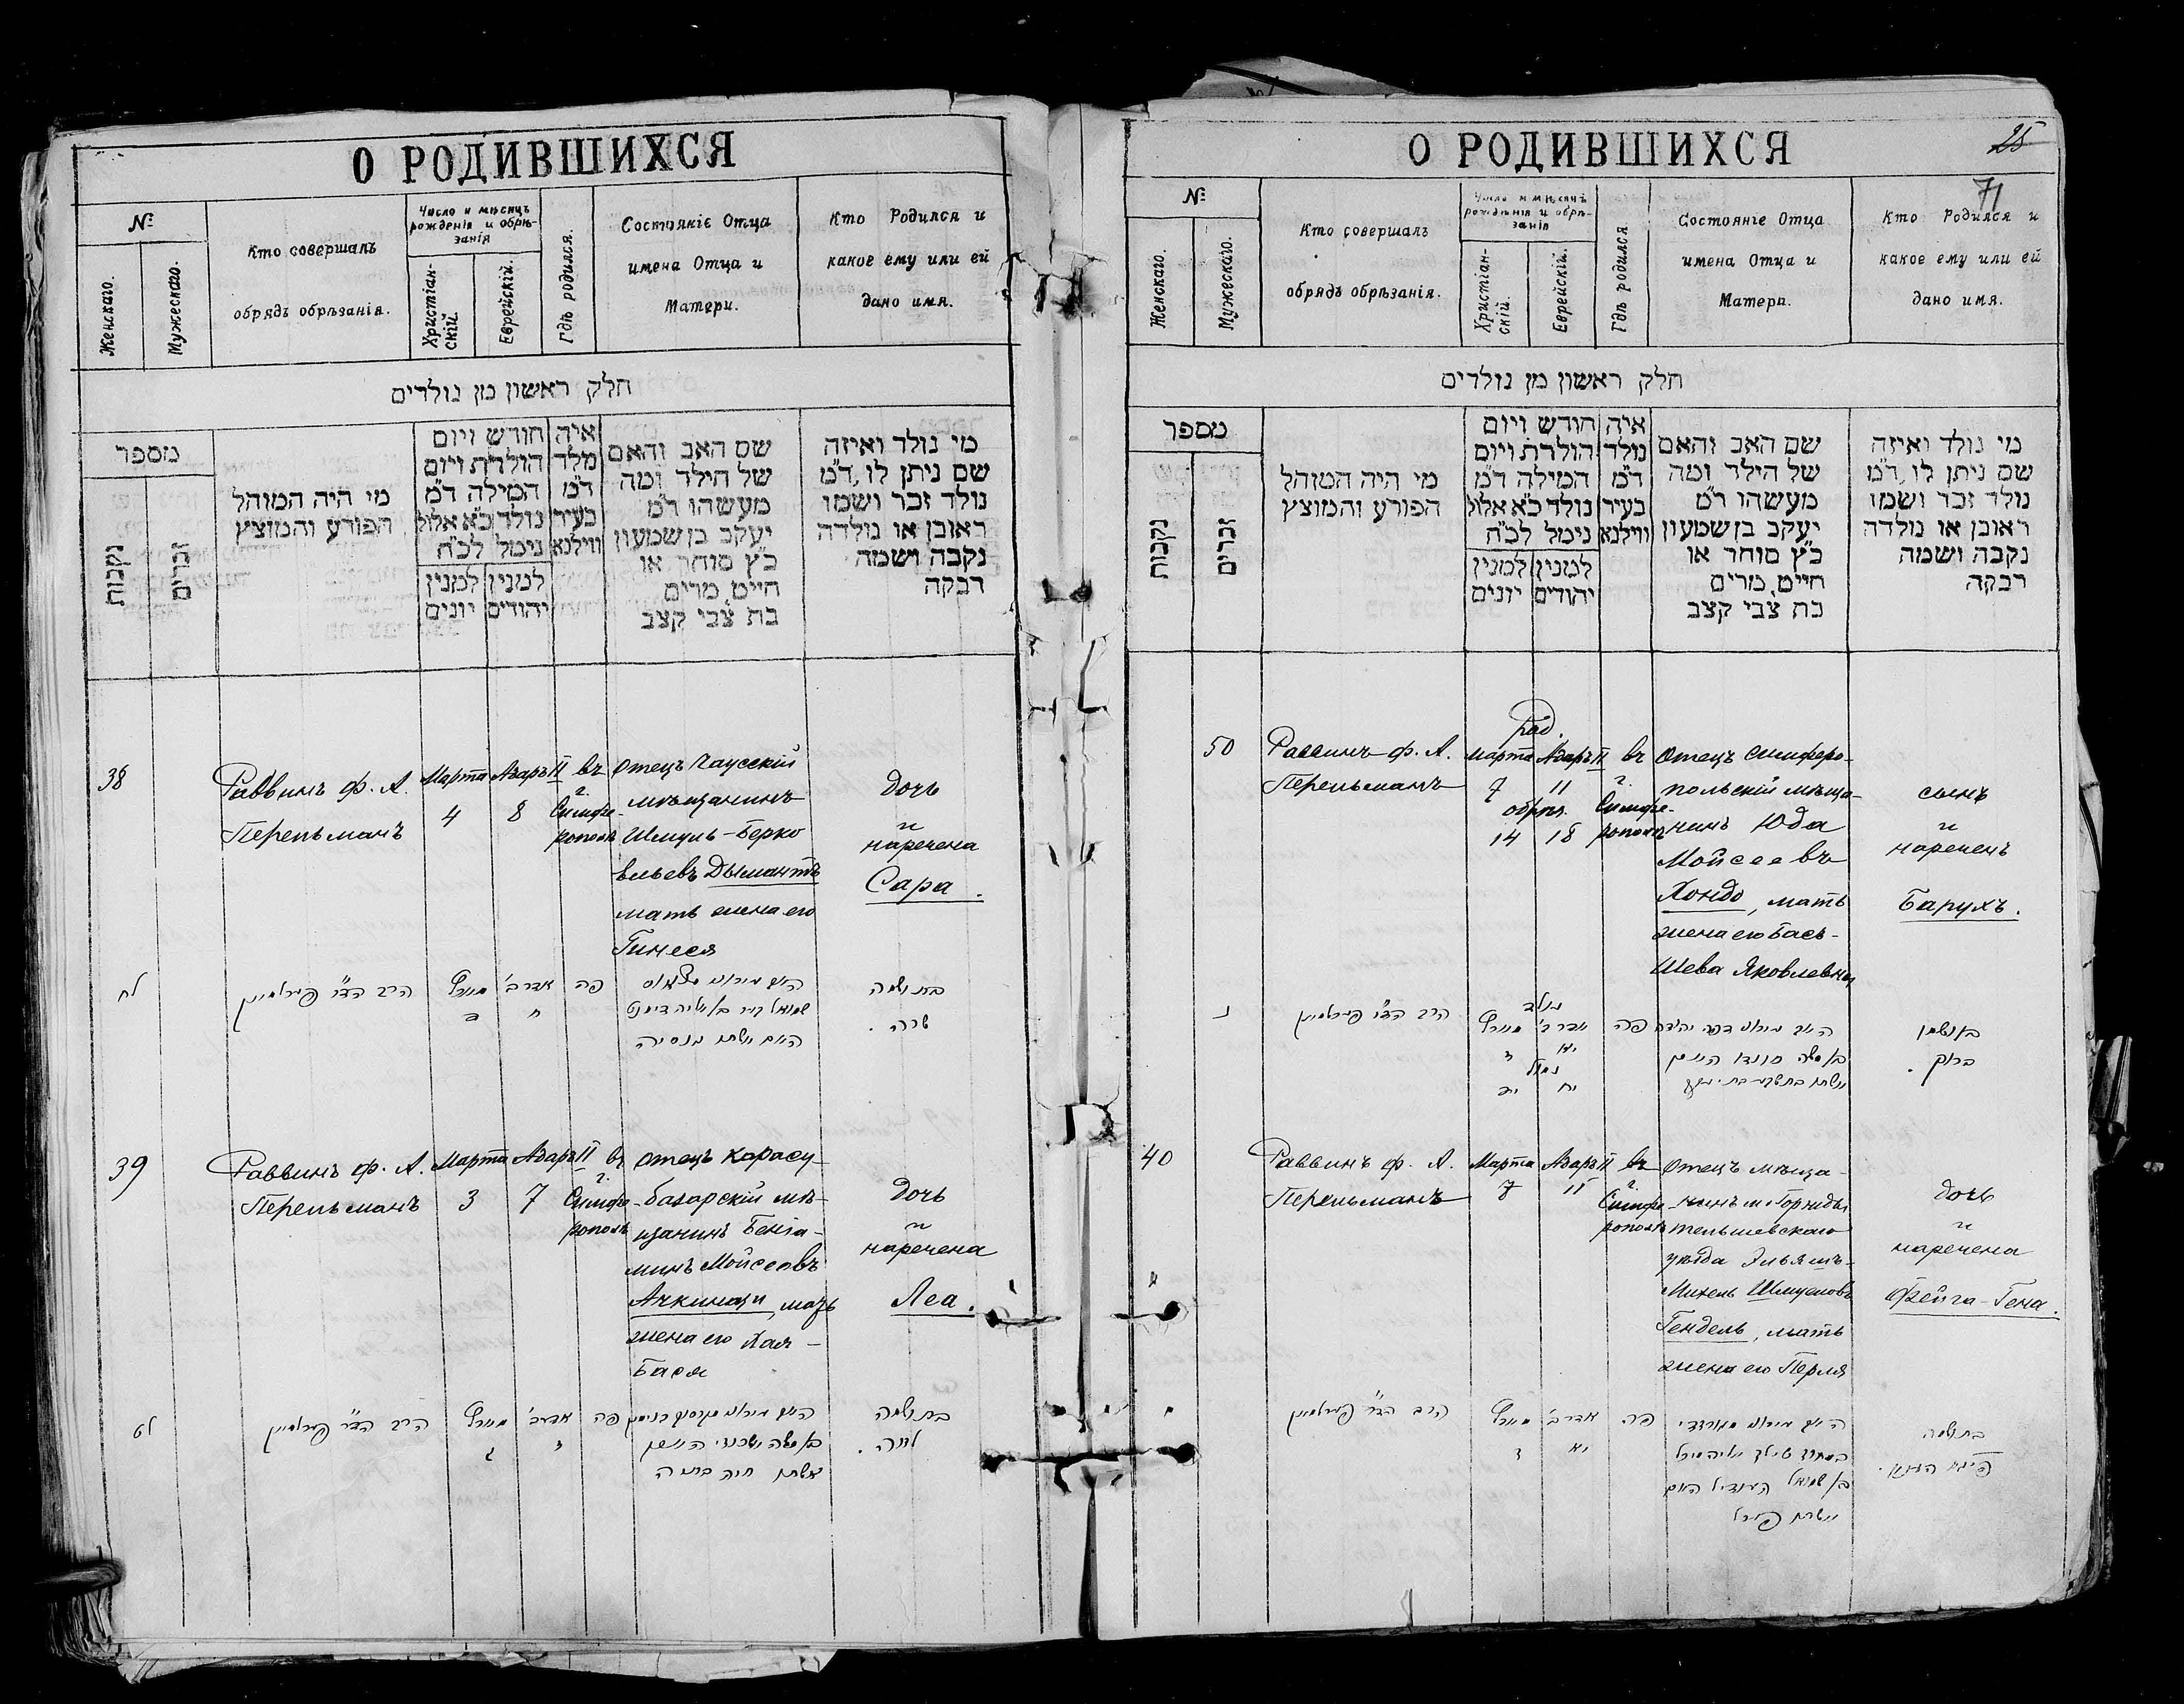 О РОДИВШИХСЯ
№
Женскаго.
Мужескаго.
Кто совершалъ
обрядъ обрѣзанія.
Число и мѣсяцъ
рожденія и обрѣ-
занія
Христіан-
скій.
Еврейскій.
Гдѣ родился.
Состоянiе Отца
имена Отца и
Матери.
Кто Родился и
какое ему или ей
дано имя.
חלק ראשון מן נולדים
מספר
נקבות
זכרים
מי היה המוהל
הפורע והמוצץ
חודש ויום
הולדת ויום
המילה ד״מ
נולד כ״א אלול
נימל לכ״ח
למנין
יהודים
למנין
יונים
איה
מלד
ד״מ
בעיר
ווילנא
שם האב והאם
של הילד ומה
מעשהו ד״מ
יעקב בן שמעון
כ״ץ סוחר או
חייט, מרים
בת צבי קצב
מי נולד ואיזה
שם ניתן לו, ד״מ
נולד זכר ושמו
ראובן או נולדה
נקבה ושמה
רבקה
38
Раввинъ Ф. А.
Перельманъ
Марта
4
Адаръ II
8
въ
г.
Симфе-
рополѣ
Отецъ Чаусскій
мѣщанинъ
Шмуль-Берко
вльевъ Дымантъ
мать жена его
Гинеся
дочь
и
наречена
Сара.
לח
הרב הד״ר פערלמאן
מערץ
ד
אדר ב׳
ח
פה
בת ושמה
שרה.
39
Раввинъ Ф. А.
Перельманъ
Марта
3
Адаръ II
7
въ
г.
Симфе-
рополѣ
Отецъ Карасу-
базарскій мѣ-
щанинъ Бенiа-
минъ Мойсеевъ
Ачкинази, мать
жена его Хая-
Бася
дочь
и
наречена
Леа.
לט
הרב הד״ר פערלמאן
מערץ
ג
אדר ב׳
ז
פה
בן משה אשכנזי
אשתו חיה בתיה
בת ושמה
לאה.
О РОДИВШИХСЯ
25
71
№
Женскаго.
Мужескаго.
Кто совершалъ
обрядъ обрѣзанія.
Число и мѣсяцъ
рожденія и обрѣ-
занія
Христіан-
скій.
Еврейскій.
Гдѣ родился
Состоянiе Отца
имена Отца и
Матери.
Кто Родился и
какое ему или ей
дано имя.
חלק ראשון מן נולדים
מספר
נקבות
זכרים
מי היה המוהל
הפורע והמוצץ
חודש ויום
הולדת ויום
המילה ד״מ
נולד כ״א אלול
נימל לכ״ח
למנין
יהודים
למנין
יונים
איה
נולד
ד״מ
בעיר
ווילנא
שם האב והאם
של הילד ומה
מעשהו ד״מ
יעקב בן שמעון
כ״ץ סוחר או
חייט, מרים
בת צבי קצב
מי נולד ואיזה
שם ניתן לו, ד״מ
נולד זכר ושמו
ראובן או נולדה
נקבה ושמה
רבקה
50
Раввинъ Ф. А.
Перельманъ
род.
Марта Адаръ II
7 11
обрѣз.
14 18
въ
г.
Симфе-
рополѣ
Отецъ Симферо-
польскій мѣща-
нинъ Юда
Мойсеевъ
Хондо, мать
жена его Бась-
Шева Яковлевна
сынъ
и
нареченъ
Барухъ.
נ
הרב הד״ר פערלמאן
נולד
אדר ב׳ מערץ
יא ז
נמול
יח יד
פה
בן ושמו
ברוך.
40
Раввинъ Ф. А.
Перельманъ
Марта
7
Адаръ II
11
въ
г.
Симфе-
рополѣ
Отецъ мѣща-
нинъ м. Горжды
Тельшевскаго
уѣзда Эльяшъ-
Михель Шмуеловъ
Гендель, мать
жена его Перля
дочь
и
наречена
Фейга-Гена.
מ
הרב הד״ר פערלמאן
מערץ
ז
אדר ב׳
יא
פה
בן שמואל הענדיל
אשתו פערל
בת ושמה
פייגא הענא.